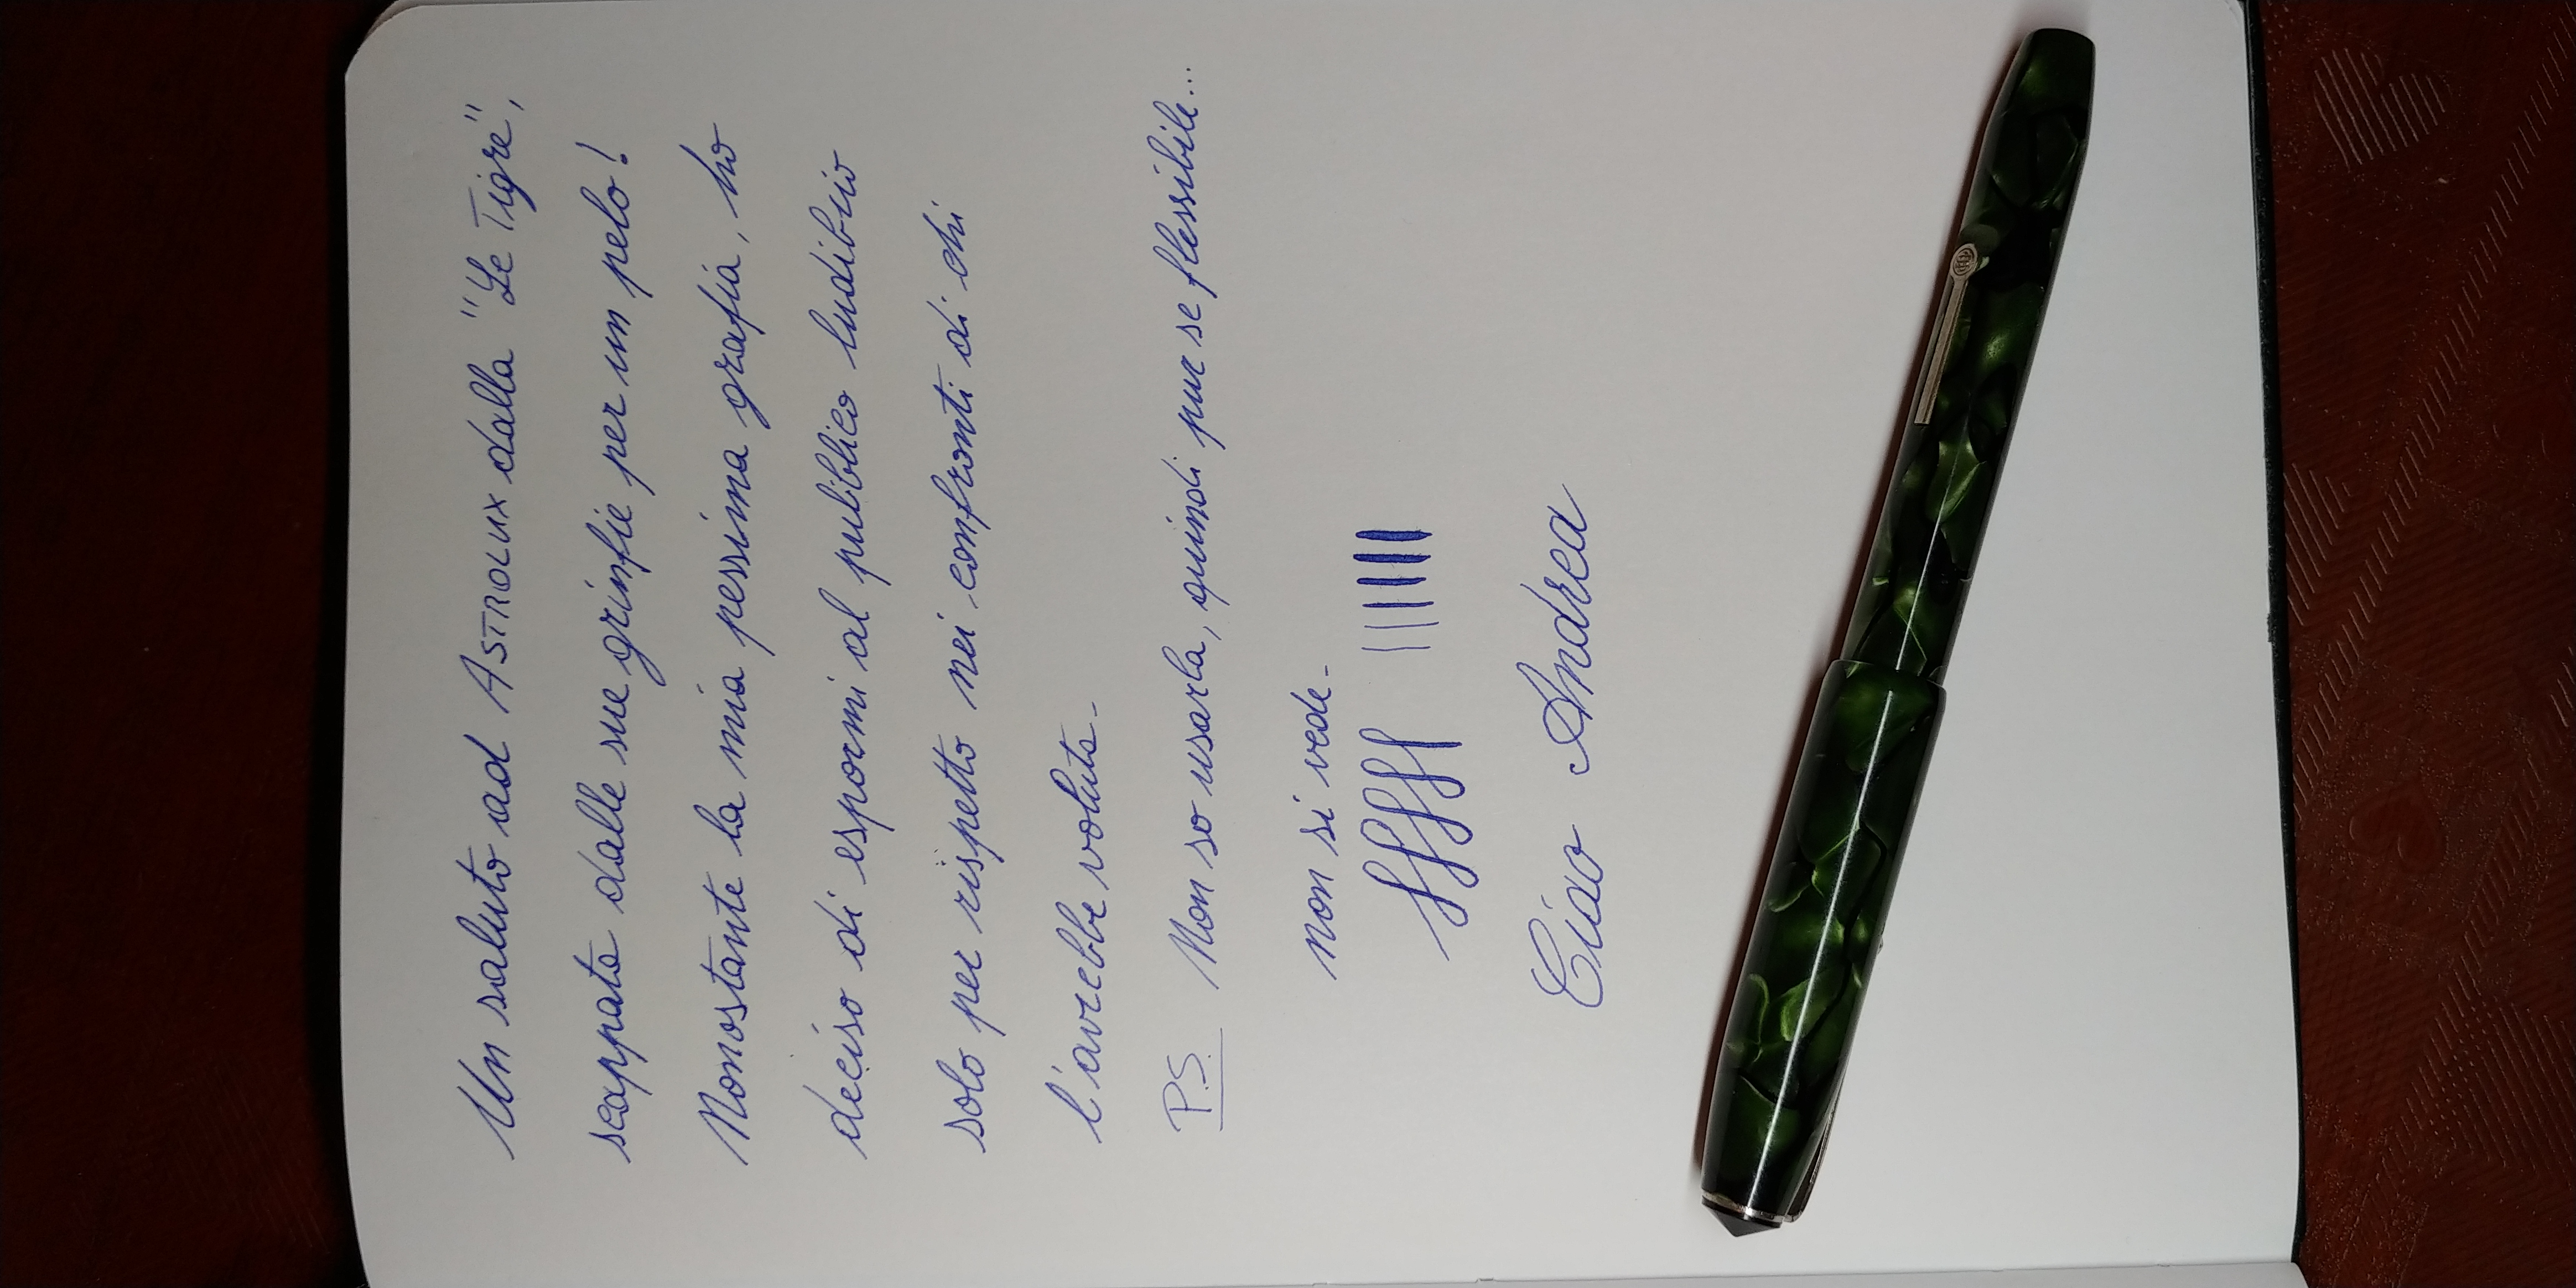 Un saluto ad ASTROLUX dalla "Le Tigre",
scappata dalle sue grinfie per un pelo!
Nonostante la mia pessima grafia, ho
deciso di espormi al pubblico ludibrio
solo per rispetto nei confronti di chi
l'avrebbe voluta.
P.S. Non so usarla, quindi pur se flessibile...
non si vede.
Ciao Andrea